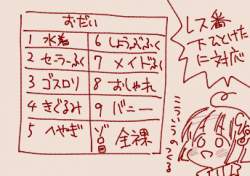 おだい
1 水着
2 セーラーふく
3 ゴスロリ
4 きぐるみ
5 へやぎ
6 しょうぶふく
7 メイドふく
8 おしゃれ
9 バニー
ゾロ目 全裸
レス番
下ひとけた
に対応
こういうのつくる